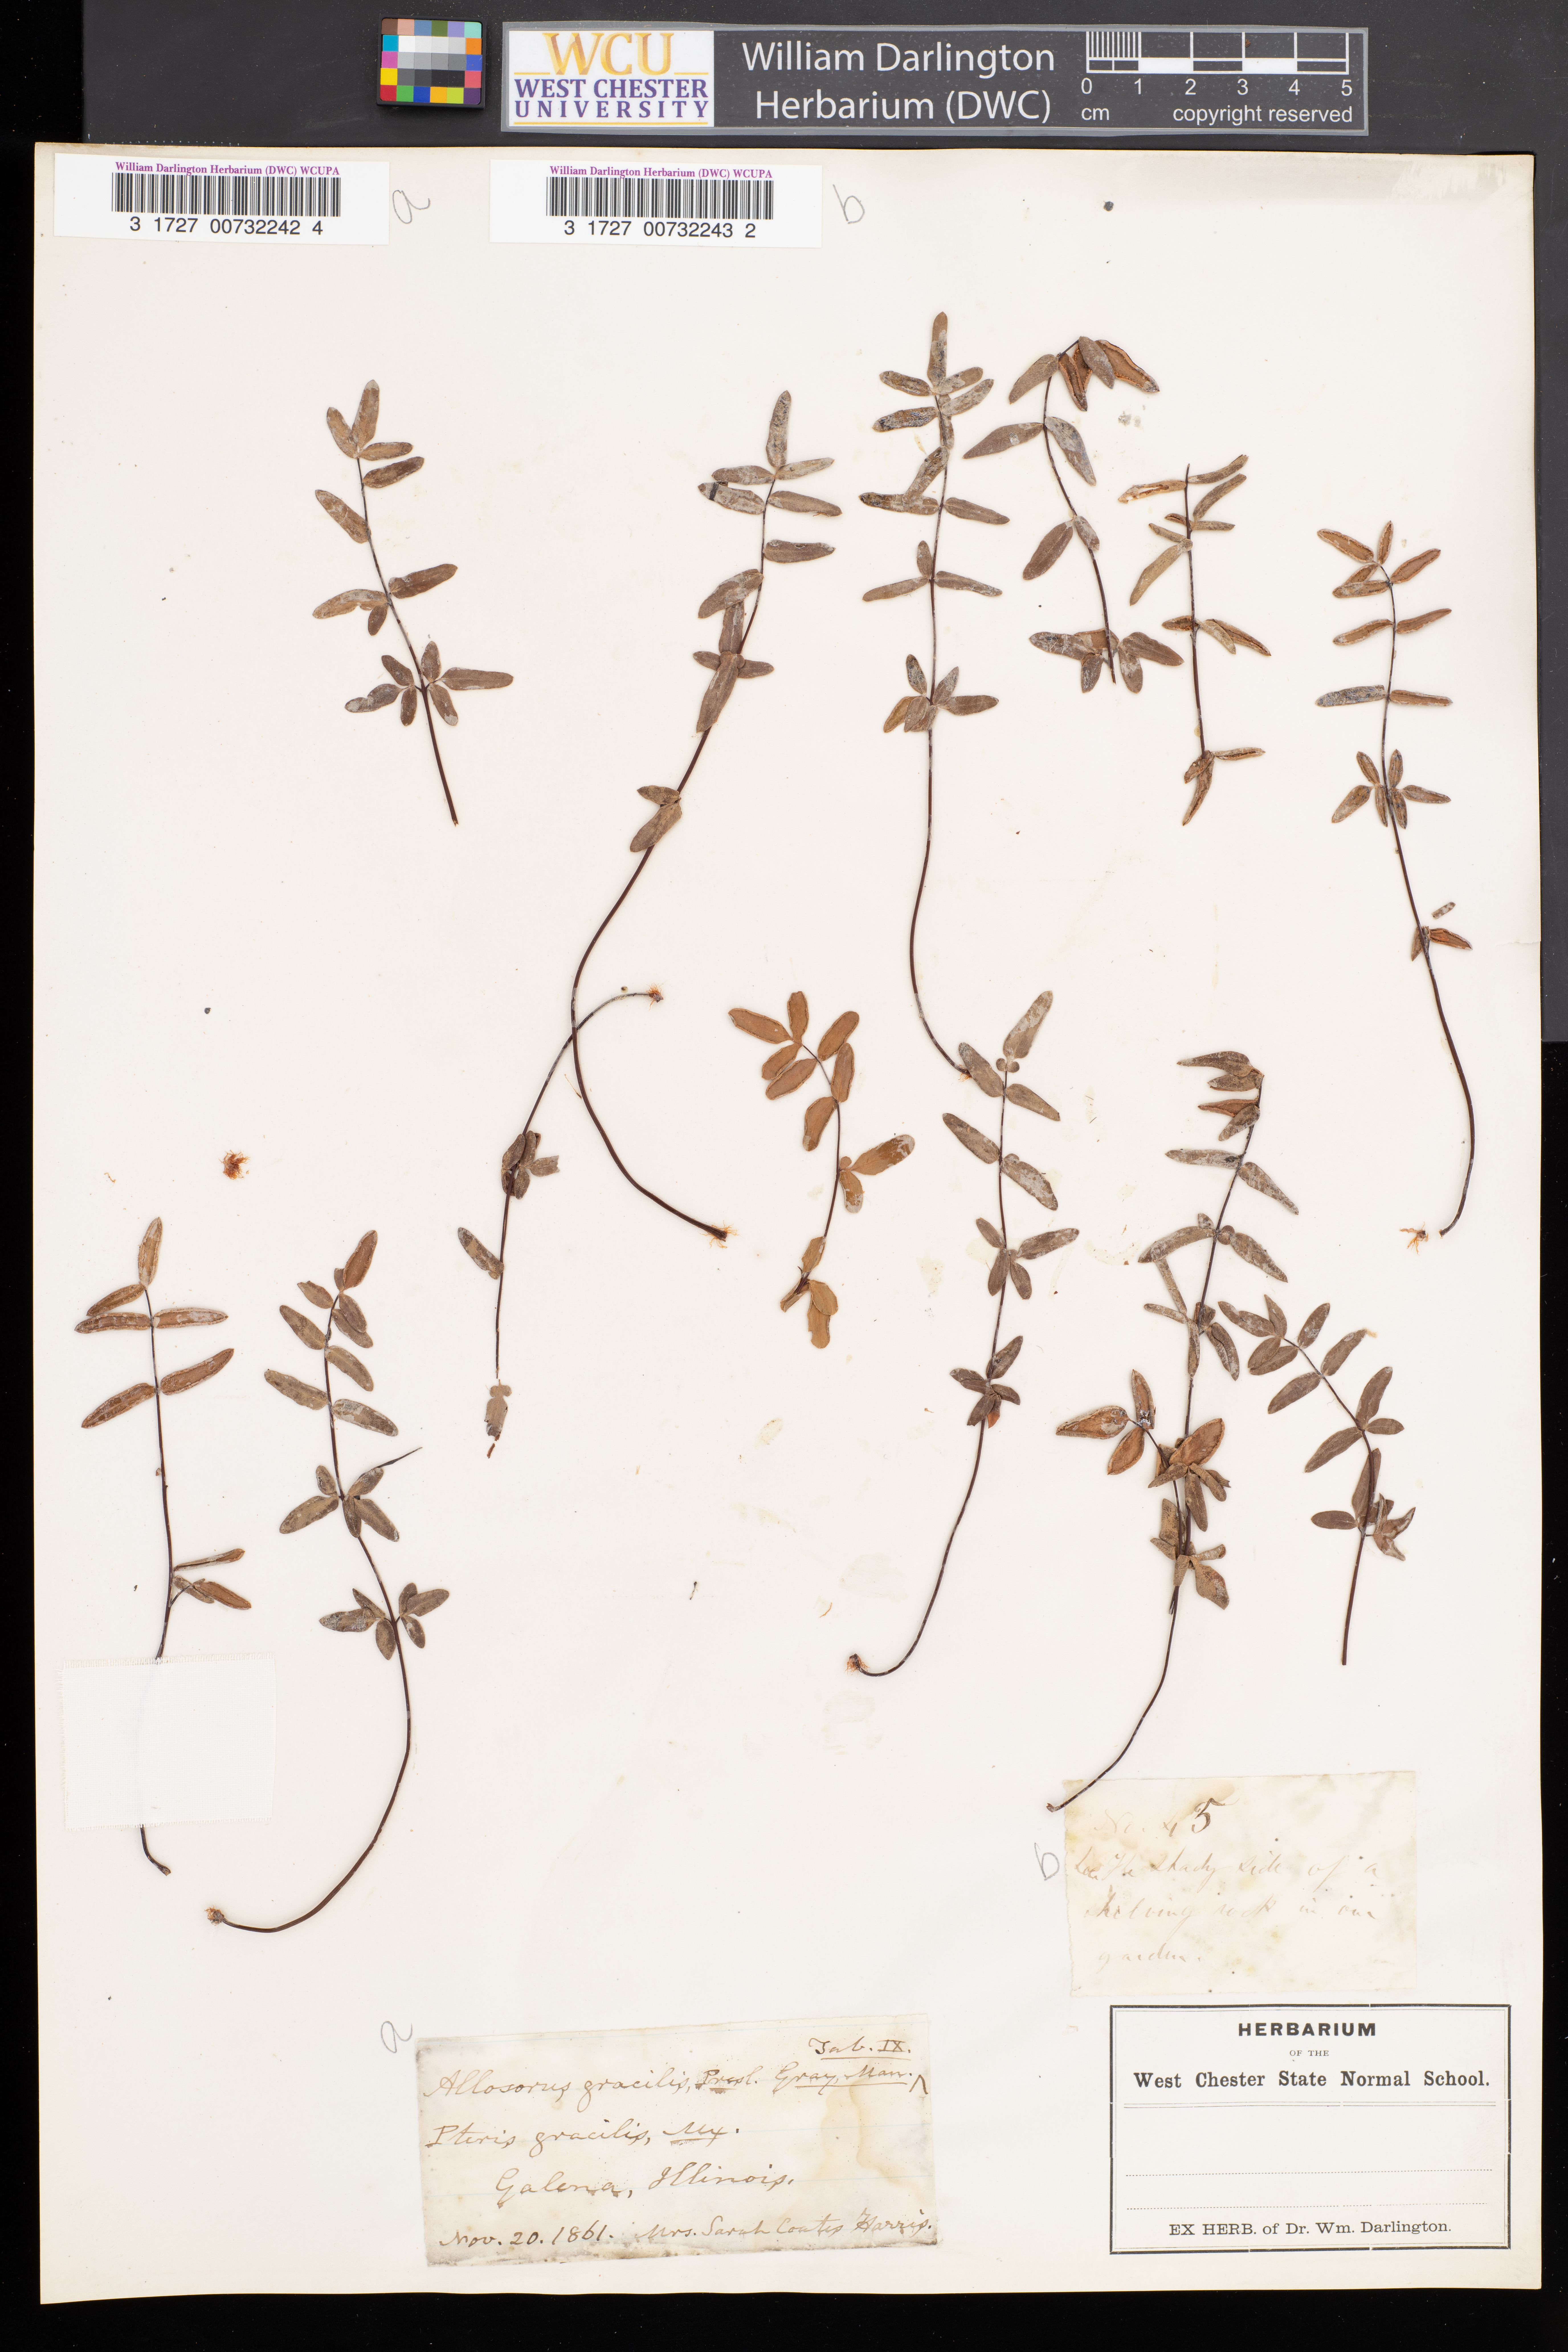 WCU
WEST CHESTER
UNIVERSITY
William Darlington
Herbarium (DWC)
0 1 2 3 4 5
cm copyright reserved
William Darlington Herbarium (DWC) WCUPA
3 1727 00732242 4
a
William Darlington Herbarium (DWC) WCUPA
3 1727 00732243 2
b
No. 45
b
the shady side of a
shelving rock in our
garden.
a
Tab. IX.
Allosorus gracilis, Presl. Gray, Man. ^
Pteris gracilis, Mx.
Galena, Illinois.
Nov. 20. 1861. Mrs. Sarah Coates Harris.
HERBARIUM
OF THE
West Chester State Normal School.
EX HERB. of Dr. Wm. Darlington.